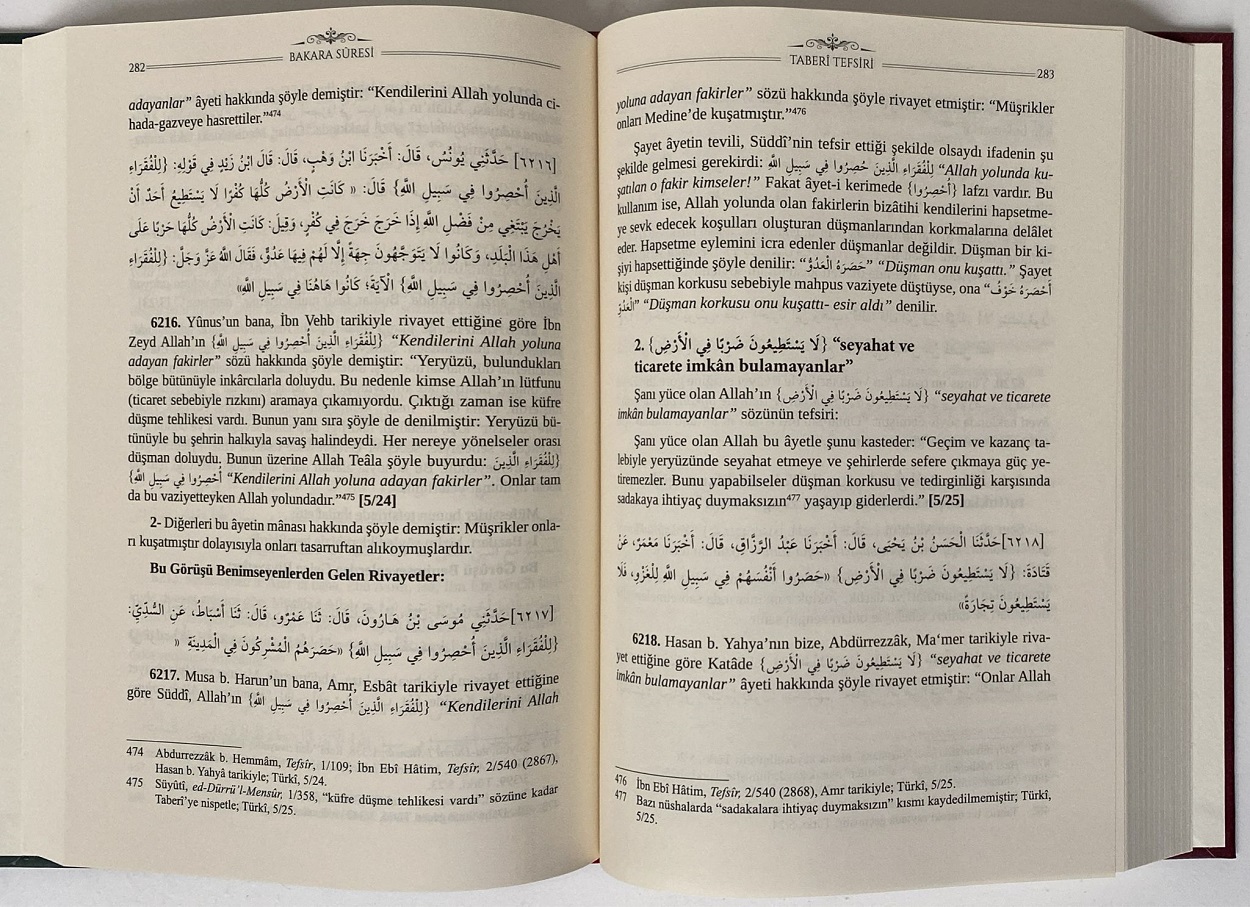 282
BAKARA SÛRESİ
adayanlar” âyeti hakkında şöyle demiştir: “Kendilerini Allah yolunda ci-
hada-gazveye hasrettiler.”474
[٦٢١٦] حَدَّثَنِي يُونُسَ، قَالَ: أَخْبَرَنَا ابْنُ وَهْبٍ، قَالَ: قَالَ ابْنُ زَيْدٍ فِي قَوْلِهِ: {لِلْفُقَرَاءِ
الَّذِينَ أُحْصِرُوا فِي سَبِيلِ اللَّهِ} قَالَ: « كَانَتِ الْأَرْضُ كُلُّهَا كُفْرًا لَا يَسْتَطِيعُ أَحَدٌ أَنْ
يَخْرُجَ يَبْتَغِي مِنْ فَضْلِ اللَّهِ إِذَا خَرَجَ خَرَجَ فِي كُفْرٍ، وَقِيلَ: كَانَتِ الْأَرْضُ كُلُّهَا حَرْبًا عَلَى
أَهْلِ هَذَا الْبَلَدِ، وَكَانُوا لَا يَتَوَجَّهُونَ جِهَةً إِلَّا لَهُمْ فِيهَا عَدُوٌّ، فَقَالَ اللَّهُ عَزَّ وَجَلَّ: {لِلْفُقَرَاءِ
الَّذِينَ أُحْصِرُوا فِي سَبِيلِ اللَّهِ} الْآيَةَ؛ كَانُوا هَاهُنَا فِي سَبِيلِ اللَّهِ»
6216. Yûnus’un bana, İbn Vehb tarikiyle rivayet ettiğine göre İbn
Zeyd Allah’ın {لِلْفُقَرَاءِ الَّذِينَ أُحْصِرُوا فِي سَبِيلِ اللَّهِ} “Kendilerini Allah yoluna
adayan fakirler” sözü hakkında şöyle demiştir: “Yeryüzü, bulundukları
bölge bütünüyle inkârcılarla doluydu. Bu nedenle kimse Allah’ın lütfunu
(ticaret sebebiyle rızkını) aramaya çıkamıyordu. Çıktığı zaman ise küfre
düşme tehlikesi vardı. Bunun yanı sıra şöyle de denilmiştir: Yeryüzü bü-
tünüyle bu şehrin halkıyla savaş halindeydi. Her nereye yönelseler orası
düşman doluydu. Bunun üzerine Allah Teâla şöyle buyurdu: {لِلْفُقَرَاءِ الَّذِينَ
أُحْصِرُوا فِي سَبِيلِ اللَّهِ} “Kendilerini Allah yoluna adayan fakirler”. Onlar tam
da bu vaziyetteyken Allah yolundadır.”475 [5/24]
2- Diğerleri bu âyetin mânası hakkında şöyle demiştir: Müşrikler onla-
rı kuşatmıştır dolayısıyla onları tasarruftan alıkoymuşlardır.
Bu Görüşü Benimseyenlerden Gelen Rivayetler:
[٦٢١٧]حَدَّثَنِي مُوسَى بْنُ هَارُونَ، قَالَ: ثَنَا عَمْرُو، قَالَ: ثَنَا أَسْبَاطُ، عَنِ السُّدِّيِّ:
{لِلْفُقَرَاءِ الَّذِينَ أُحْصِرُوا فِي سَبِيلِ اللَّهِ} «حَصَرَهُمُ الْمُشْرِكُونَ فِي الْمَدِينَةِ »
6217. Musa b. Harun’un bana, Amr, Esbât tarikiyle rivayet ettiğine
göre Süddî, Allah’ın {لِلْفُقَرَاءِ الَّذِينَ أُحْصِرُوا فِي سَبِيلِ اللَّهِ} “Kendilerini Allah
474 Abdurrezzâk b. Hemmâm, Tefsîr, 1/109; İbn Ebî Hâtim, Tefsîr, 2/540 (2867),
Hasan b. Yahyâ tarikiyle; Türkî, 5/24.
475 Süyûtî, ed-Dürrü’l-Mensûr, 1/358, “küfre düşme tehlikesi vardı” sözüne kadar
Taberî’ye nispetle; Türkî, 5/25.
TABERÎ TEFSİRİ
283
yoluna adayan fakirler” sözü hakkında şöyle rivayet etmiştir: “Müşrikler
onları Medine’de kuşatmıştır.”476
Şayet âyetin tevili, Süddî’nin tefsir ettiği şekilde olsaydı ifadenin şu
şekilde gelmesi gerekirdi: لِلْفُقَرَاءِ الَّذِينَ حُصِرُوا فِي سَبِيلِ اللَّهِ “Allah yolunda ku-
şatılan o fakir kimseler!” Fakat âyet-i kerimede {أُحْصِرُوا} lafzı vardır. Bu
kullanım ise, Allah yolunda olan fakirlerin bizâtihi kendilerini hapsetme-
ye sevk edecek koşulları oluşturan düşmanlarından korkmalarına delâlet
eder. Hapsetme eylemini icra edenler düşmanlar değildir. Düşman bir ki-
şiyi hapsettiğinde şöyle denilir: “حَصَرَهُ الْعَدُوُّ” “Düşman onu kuşattı.” Şayet
kişi düşman korkusu sebebiyle mahpus vaziyete düştüyse, ona “أَحْصَرَهُ خَوْفُ
الْعَدُوِّ” “Düşman korkusu onu kuşattı- esir aldı” denilir.
2. {لَا يَسْتَطِيعُونَ ضَرْبًا فِي الْأَرْضِ} “seyahat ve
ticarete imkân bulamayanlar”
Şanı yüce olan Allah’ın {لَا يَسْتَطِيعُونَ ضَرْبًا فِي الْأَرْضِ} “seyahat ve ticarete
imkân bulamayanlar” sözünün tefsiri:
Şanı yüce olan Allah bu âyetle şunu kasteder: “Geçim ve kazanç ta-
lebiyle yeryüzünde seyahat etmeye ve şehirlerde sefere çıkmaya güç ye-
tiremezler. Bunu yapabilseler düşman korkusu ve tedirginliği karşısında
sadakaya ihtiyaç duymaksızın477 yaşayıp giderlerdi.” [5/25]
[٦٢١٨]حَدَّثَنَا الْحَسَنُ بْنُ يَحْيَى، قَالَ: أَخْبَرَنَا عَبْدُ الرَّزَّاقِ، قَالَ: أَخْبَرَنَا مَعْمَرٌ، عَنْ
قَتَادَةَ: {لَا يَسْتَطِيعُونَ ضَرْبًا فِي الْأَرْضِ} «حَصَرُوا أَنْفُسَهُمْ فِي سَبِيلِ اللَّهِ لِلْغَزْوِ، فَلَا
يَسْتَطِيعُونَ تِجَارَةً»
6218. Hasan b. Yahya’nın bize, Abdürrezzâk, Ma‘mer tarikiyle riva-
yet ettiğine göre Katâde {لَا يَسْتَطِيعُونَ ضَرْبًا فِي الْأَرْضِ} “seyahat ve ticarete
imkân bulamayanlar” âyeti hakkında şöyle rivayet etmiştir: “Onlar Allah
476 İbn Ebî Hâtim, Tefsîr, 2/540 (2868), Amr tarikiyle; Türkî, 5/25.
477 Bazı nüshalarda “sadakalara ihtiyaç duymaksızın” kısmı kaydedilmemiştir; Türkî,
5/25.